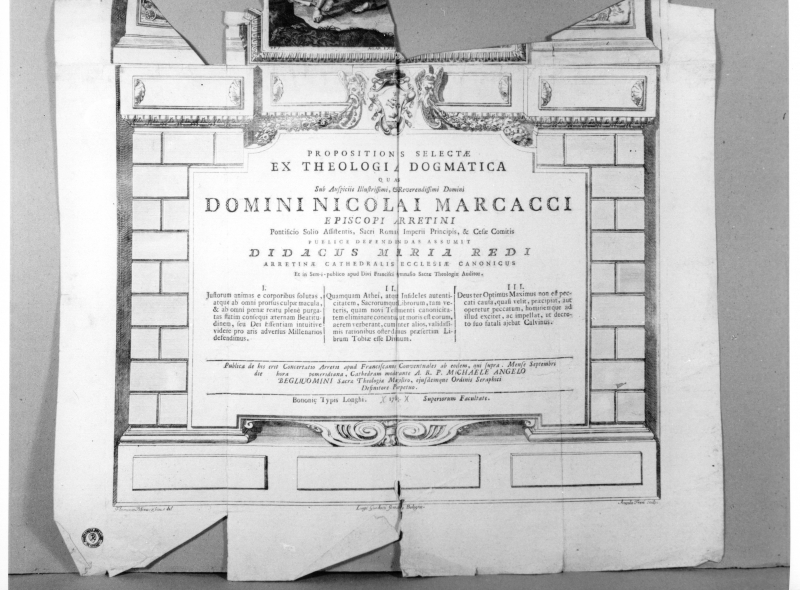 PROPOSITIONES SELECTÆ
EX THEOLOGIA DOGMATICA
QUAS
Sub Auspiciis Illustrissimi, & Reverendissimi Domini
DOMINI NICOLAI MARCACCI
EPISCOPI ARRETINI
Pontificio Solio Assistentis, Sacri Romani Imperii Principis, & Cesæ Comitis
PUBLICE DEFENDENDAS ASSUMIT
DIDACUS MARIA REDI
ARRETINÆ CATHEDRALIS ECCLESIÆ CANONICUS
Et in Semi-publico apud Divi Francisci Sacræ Theologiæ Auditor.
I.
Justorum animas e corporibus solutas,
atque ab omni prorsus culpæ macula,
& ab omni pœnæ reatu plene purga-
tas statim consequi æternam Beatitu-
dinem, seu Dei Essentiam intuitive
videre pro aris adversus Millenarios
defendimus.
II.
Quamquam Athei, atque Infideles autenti-
citatem, Sacrorumque Librorum, tam ve-
teris, quam novi Testamenti canonicita-
tem eliminare conentur, ut moris est eorum,
aerem verberant, cum inter alios, validissi-
mis rationibus ostendam præsertim Li-
brum Tobiæ esse Divinum.
III.
Deus ter Optimus Maximus non est pec-
cati causa, quasi velit, præcipiat, aut
operetur peccatum, hominemque ad
istud excitet, ac impellat, ut decre-
to suo fatali ajebat Calvinus.
Publica de his erit Concertatio Arretii apud Franciscanos Conventuales ab eodem, qui supra. Mense Septembri
die hora pomeridiana, Cathedram moderante A. R. P. MICHAELE ANGELO
BEGLIUOMINI Sacræ Theologiæ Magistro, ejusdemque Ordinis Seraphici
Definitore Perpetuo.
Bononiæ Typis Longhi. Superiorum Facultate.